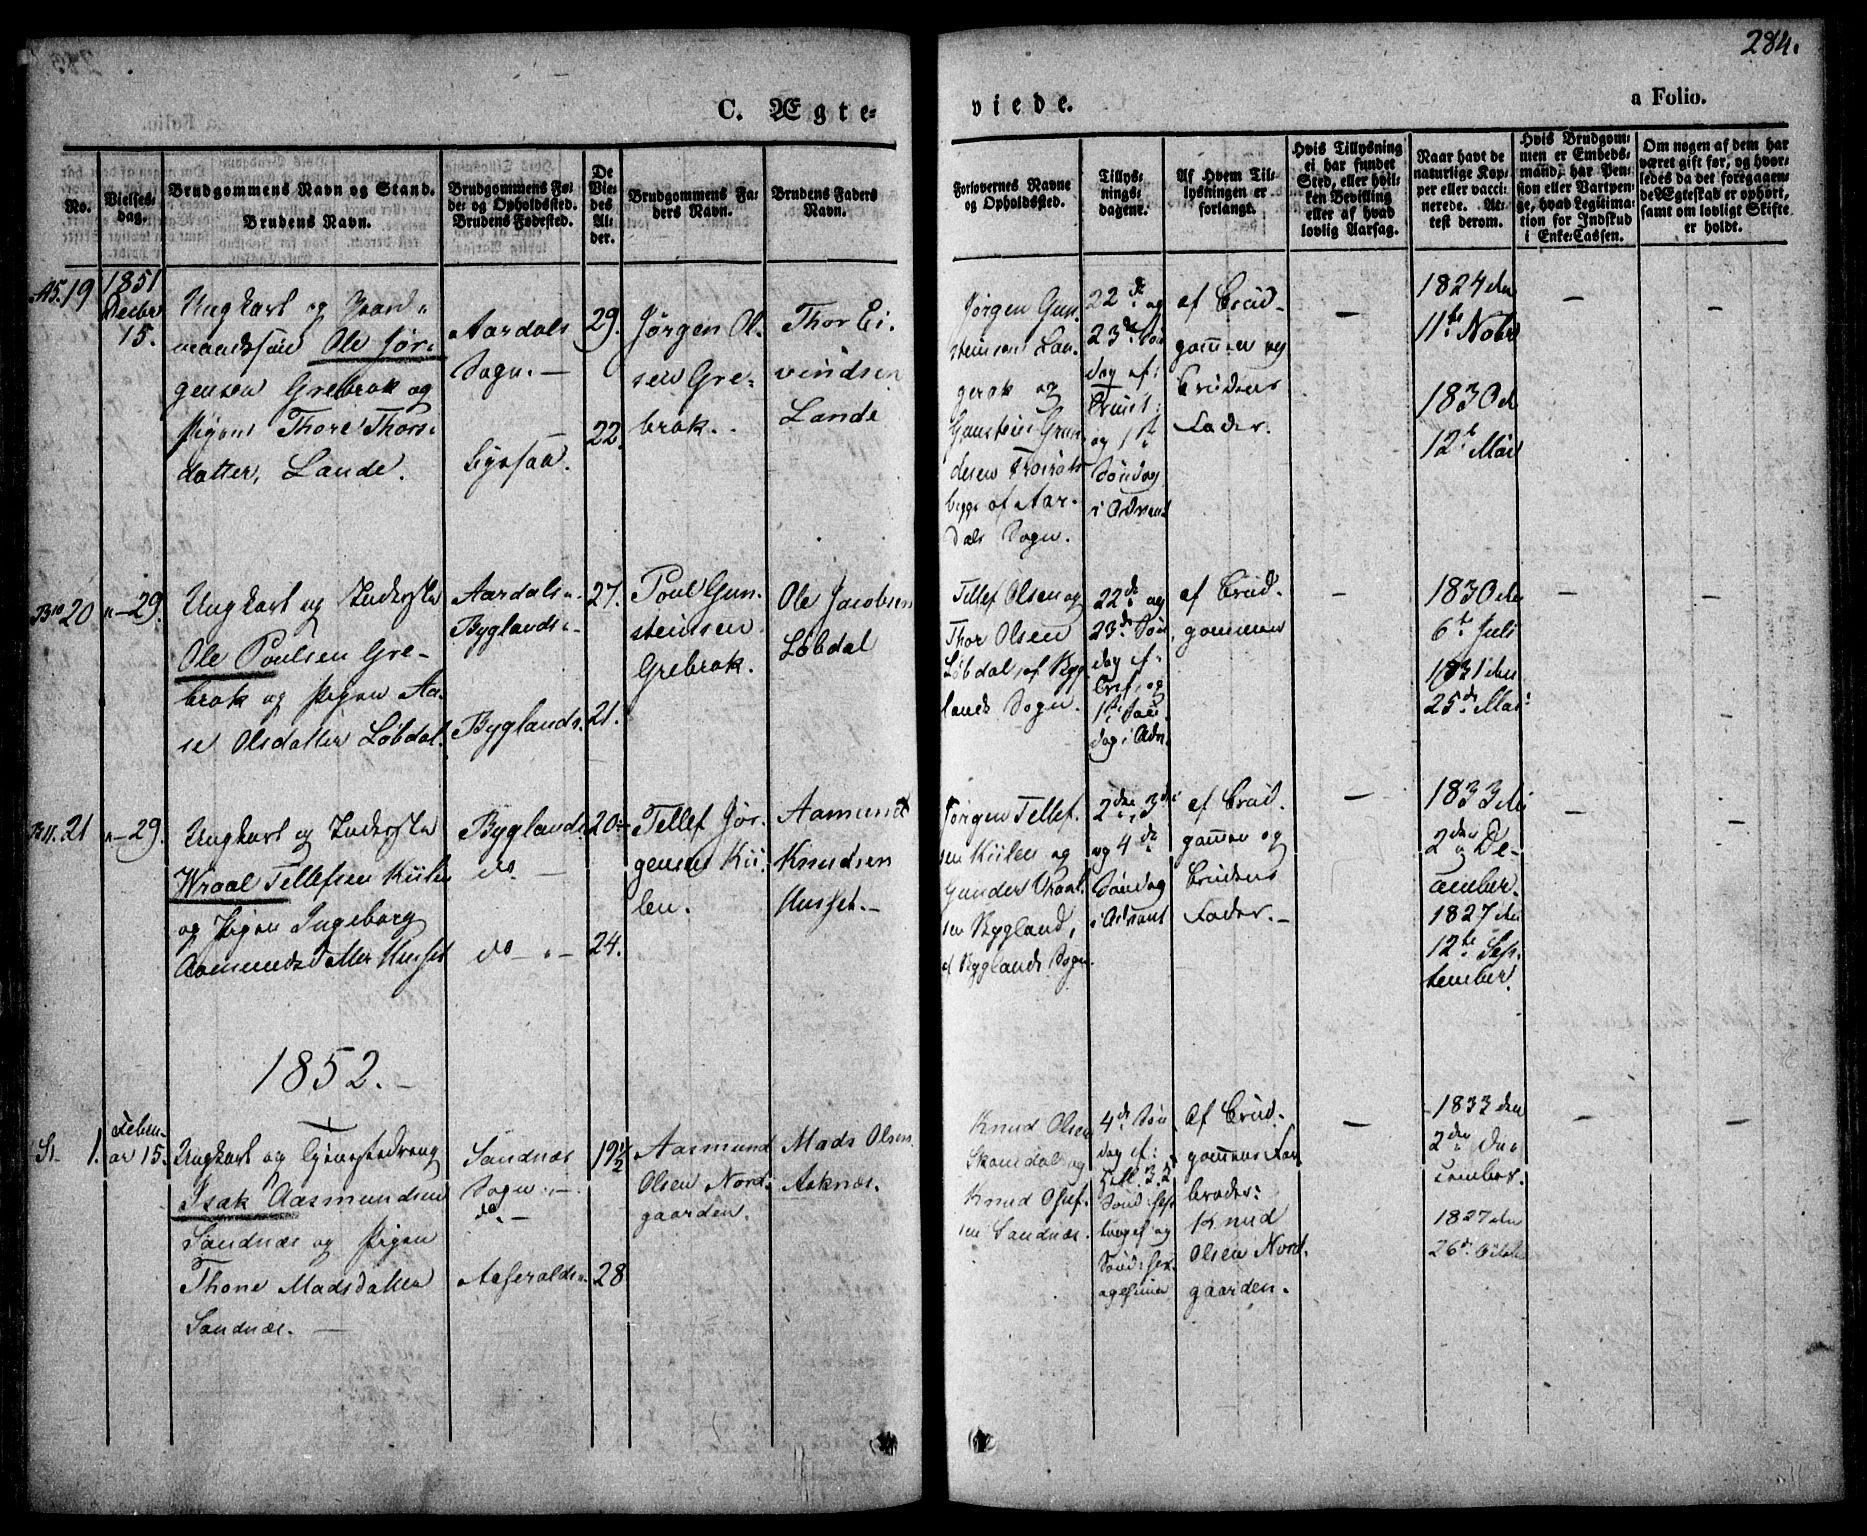 284.
C. Ægte-
viede.
a Folio.
No.
Vielses-
dag.
Brudgommens Navn og Stand.
Brudens Navn.
Brudgommens Fø-
de- og Opholdssted.
Brudens Fødested.
De
Vie-
des
Al-
der.
Brudgommens Fa-
ders Navn.
Brudens Faders
Navn.
Forlovernes Navne
og Opholdssted.
Tillys-
nings-
dagene.
Af Hvem Til-
lysningen er
forlangt.
Hvis Tillysning
ei har fundet
Sted, eller hvil-
ken Bevilling
eller af hvad
lovlig Aarsag.
Naar havt de
naturlige Kop-
per eller vacci-
nerede. At-
test derom.
Hvis Brudgom-
men er Embeds-
mand, har Pen-
sion eller Vartpen-
ge, hvad Legitima-
tion for Indskud
i Enke-Cassen.
Om nogen af dem har
været gift før, og hvor-
ledes da det foregaaen-
de Ægteskab er ophørt,
samt om lovligt Skifte
er holdt.
A5. 19
1851
Decbr
15.
Ungkarl og Gaard-
mandssøn Ole Jør-
gensen Grebrok og
Pigen Thore Thors-
datter, Lande.
Aardals
Sogn. —
29.
22.
Jørgen Ol-
sen Gre-
brok.
Thor Ei-
vindsen
Lande
Jørgen Gun-
steinsen Lan-
gerak og
Gunstein Gun-
dersen
begge af Aar-
dals Sogn.
22de og
23de Søn
dag ef:
Trinit:
og 1ste
Søndag
i Advent
af Brud-
gommen og
Brudens
Fader.
—
1824 den
11te Nobr
1830 d
12te Mai
—
—
B10 20
"—29.
Ungkarl og Inderste
Ole Poulsen Gre-
brok og Pigen Aa-
se Olsdatter Løbdal.
Aardals-
Byglands-
Byglands.
27.
21.
Poul Gun-
steinsen
Grebrok.
Ole Jacobsen
Løbdal
Tellef Olsen og
Thor Olsen
Løbdal, af Byg-
lands Sogn.
22de og
23de Søn
dag ef.
Tref. og
1ste Søn-
dag i Adv.
af Brud-
gommen
—
1830 den
6te Juli
1831 den
25de Mai
—
—
B11. 21
"—29.
Ungkarl og Inderste
Wraal Tellefsen Kiilen
og Pigen Ingeborg
Aamundsdatter Husset
Byglands
do —
do — " —
20-
24.
Tellef Jør-
gensen Kii-
len.
Aamund
Knudsen
Husset. —
Jørgen Tellef-
sen Kiilen og
Gunder Vraal-
sen Bygland,
af Byglands Sogn.
2den, 3die
og 4de
Søndag
i Advent
af Brud-
gommen og
Brudens
Fader. —
—
1833 d
2den De-
cember.
1827 den
12te Sep-
tember.
—
—
1852. —
S1 1.
Febru-
ar 15.
Ungkarl og Tjenestedreng
Isak Aasmundsen
Sandnæs og Pigen
Thone Madsdatter
Sandnæs. —
Sandnæs
Sogn. —
do. —
Aaseralds-
19 1/2
28
Aasmund
Olsen Nord-
gaarden.
Mads Olsen
Aaknæs.
Knud Olsen
og
Knud
sen Sandnæs.
4de Søn
dag ef:
og
Af Brud-
gommens Far
broder:
Knud
Olsen Nord-
gaarden.
—
1833 den
2den De-
cember.
1827 den
26de Octbr
—
—